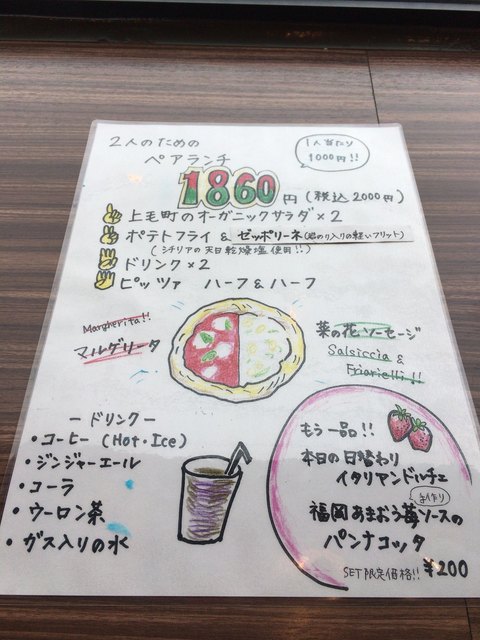 2人のための
ペアランチ
1人当たり
1000円!!
1860円(税込2000円)
上毛町のオーガニックサラダ×2
ポテトフライ&ゼッポリーネ(岩のり入りの軽いフリット)
(シチリアの天日乾燥塩使用!!)
ドリンク×2
ピッツァ ハーフ&ハーフ
Margherita!!
マルゲリータ
菜の花ソーセージ
Salsiccia &
Friarielli!!
ードリンクー
・コーヒー(Hot・Ice)
・ジンジャーエール
・コーラ
・ウーロン茶
・ガス入りの水
もう一品!!
本日の日替わり
イタリアンドルチェ
手作り
福岡あまおう苺ソースの
パンナコッタ
SET限定価格!! ¥200